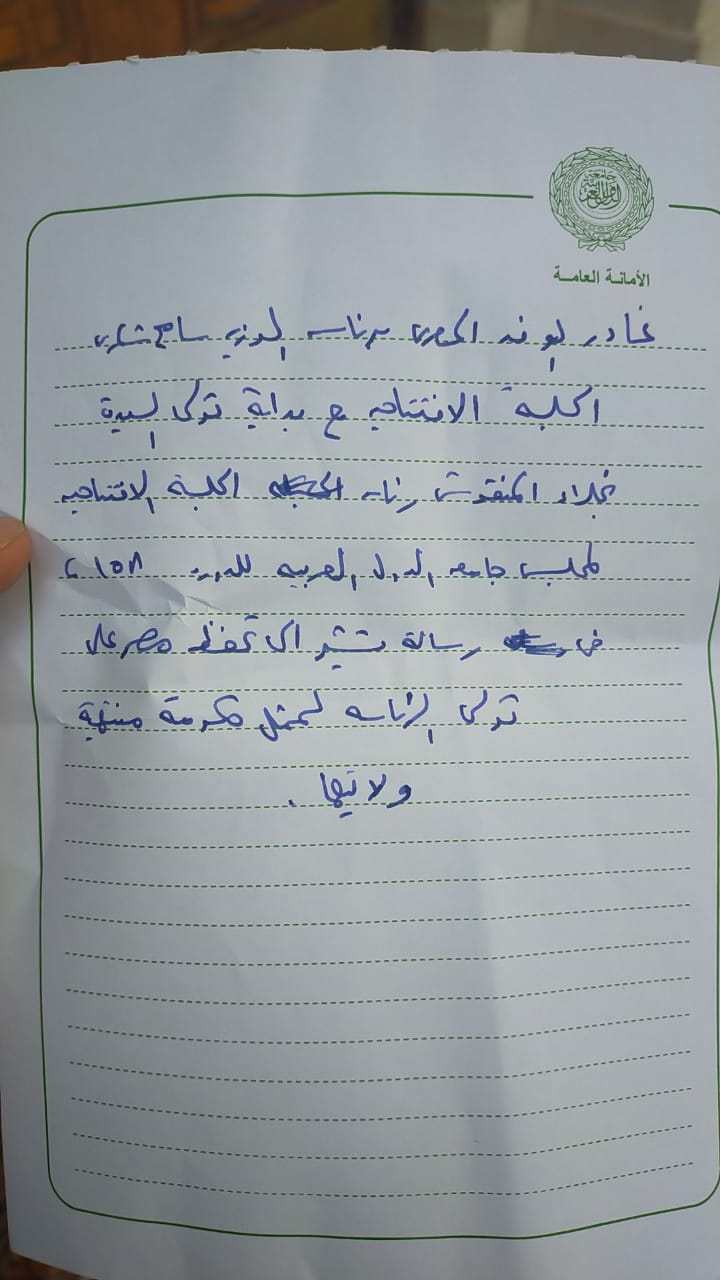 جامعة الدول العربية
الأمانة العامة
غادر الوفد المصرى برئاسه الوزير سامح شكرى
الجلسة الافتتاحيه مع بداية تولى السيدة
نجلاء المنقوش رئاسه الجلسة الافتتاحيه
لمجلس جامعه الدول العربيه للدوره ١٥٨،
فى رسالة تشير الى تحفظ مصر على
تولى الرئاسه لممثل حكومة منتهية
ولايتها .